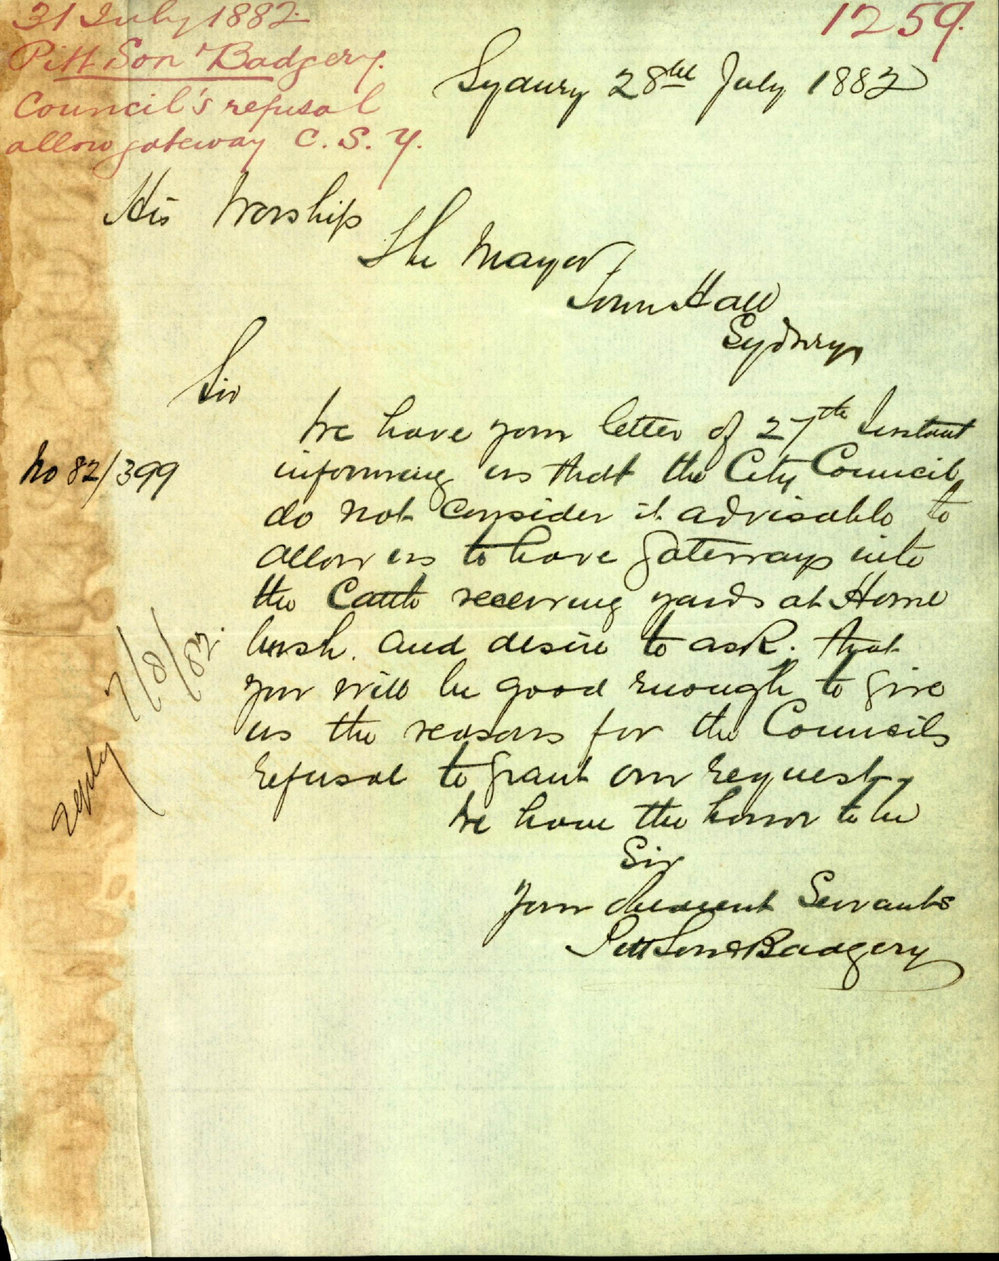 31 July 1882
1259.
Pitt Son & Badgery.
Council's refusal
allow gateway C. S. Y.
Sydney 28th July 1882
His Worship
The Mayor
Town Hall
Sydney
Sir
We have your letter of 27th Instant
No 82/399
informing us that the City Council
do not consider it advisable to
allow us to have gateways into
the Cattle receiving yards at Home
bush. and desire to ask. that
you will be good enough to give
us the reasons for the Councils
refusal to grant our request,
reply 7/8/82.
We have the honor to be
Sir
Your obedient Servants
Pitt Son & Badgery